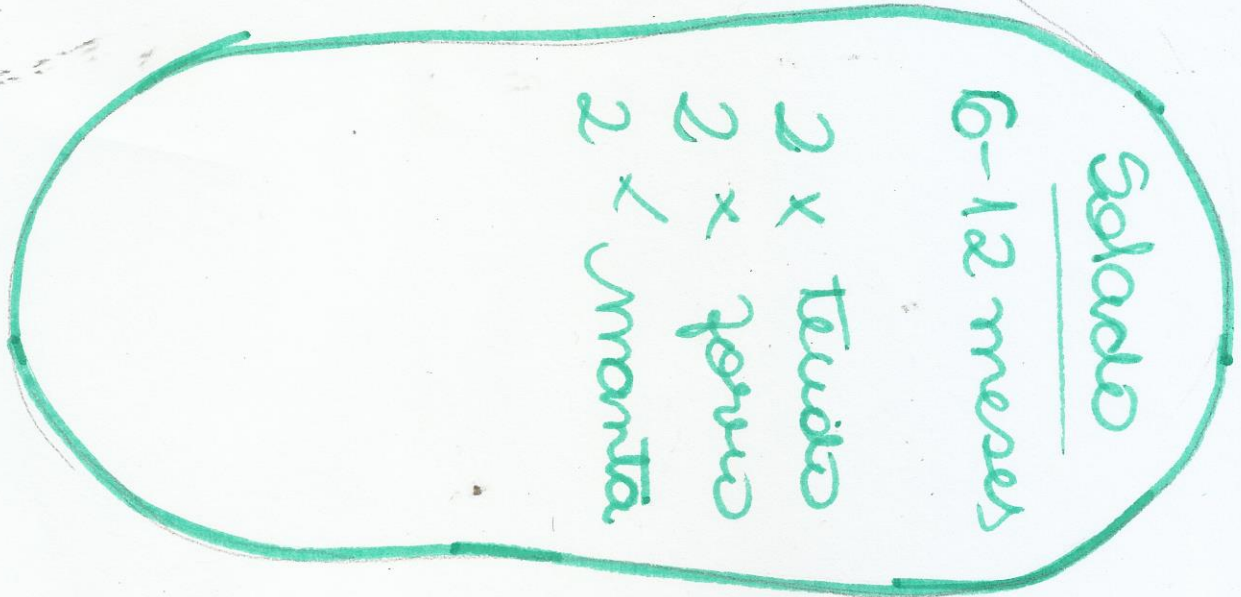 Solado
6-12 meses
2 x tecido
2 x forro
2 x manta